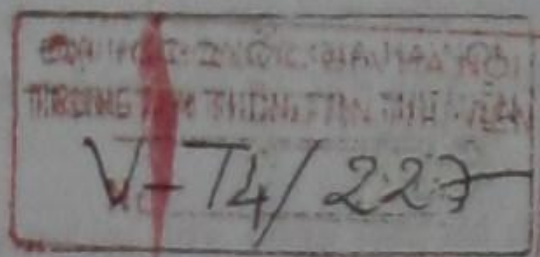 ĐẠI HỌC QUỐC GIA HÀ NỘI
TRUNG TÂM THÔNG TIN THƯ VIỆN
V-T4/227